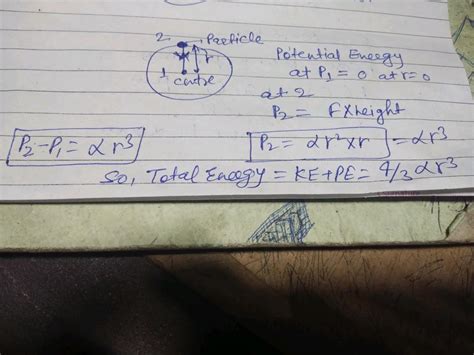 2. Particle
r
1 centre
Potential Energy
at P₁ = 0 at r=0
at 2
P₂ = F×height
P₂-P₁ = αr³
P₂ = αr²×r = αr³
So, Total Energy = KE+PE = 4/3 αr³